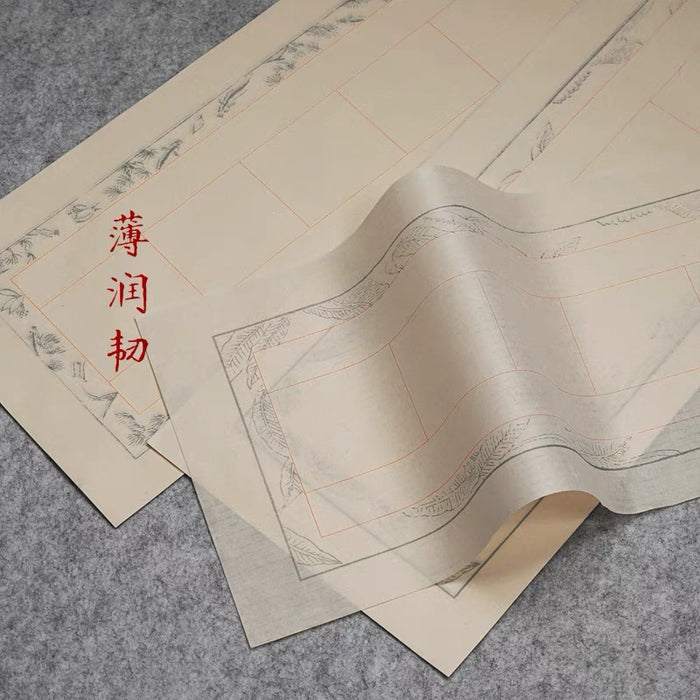 薄润韧